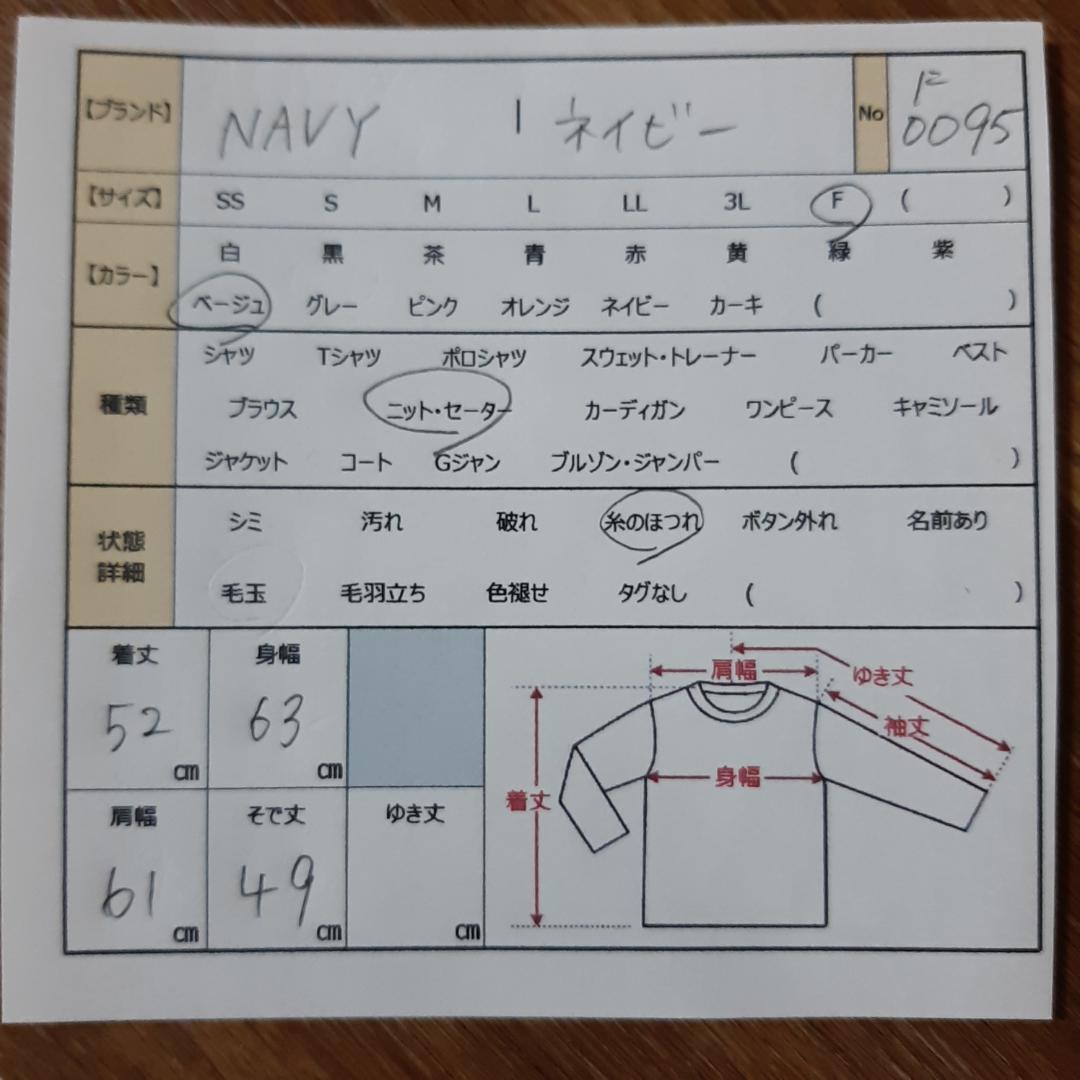 【ブランド】 NAVY | ネイビー No F 0095
【サイズ】 SS S M L LL 3L F ( )
【カラー】 白 黒 茶 青 赤 黄 緑 紫
ベージュ グレー ピンク オレンジ ネイビー カーキ ( )
種類 シャツ Tシャツ ポロシャツ スウェット・トレーナー パーカー ベスト
ブラウス ニット・セーター カーディガン ワンピース キャミソール
ジャケット コート Gジャン ブルゾン・ジャンパー ( )
状態詳細 シミ 汚れ 破れ 糸のほつれ ボタン外れ 名前あり
毛玉 毛羽立ち 色褪せ タグなし ( )
着丈 身幅
52 cm 63 cm
肩幅 そで丈 ゆき丈
61 cm 49 cm cm
肩幅 ゆき丈
袖丈
身幅
着丈